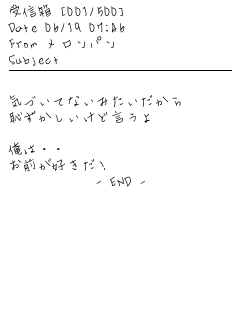 受信箱 [001/500]
Date 06/19 07:26
From メロンパン
Subject
気づいてないみたいだから
恥ずかしいけど言うよ
俺は・・
お前が好きだ!
- END -